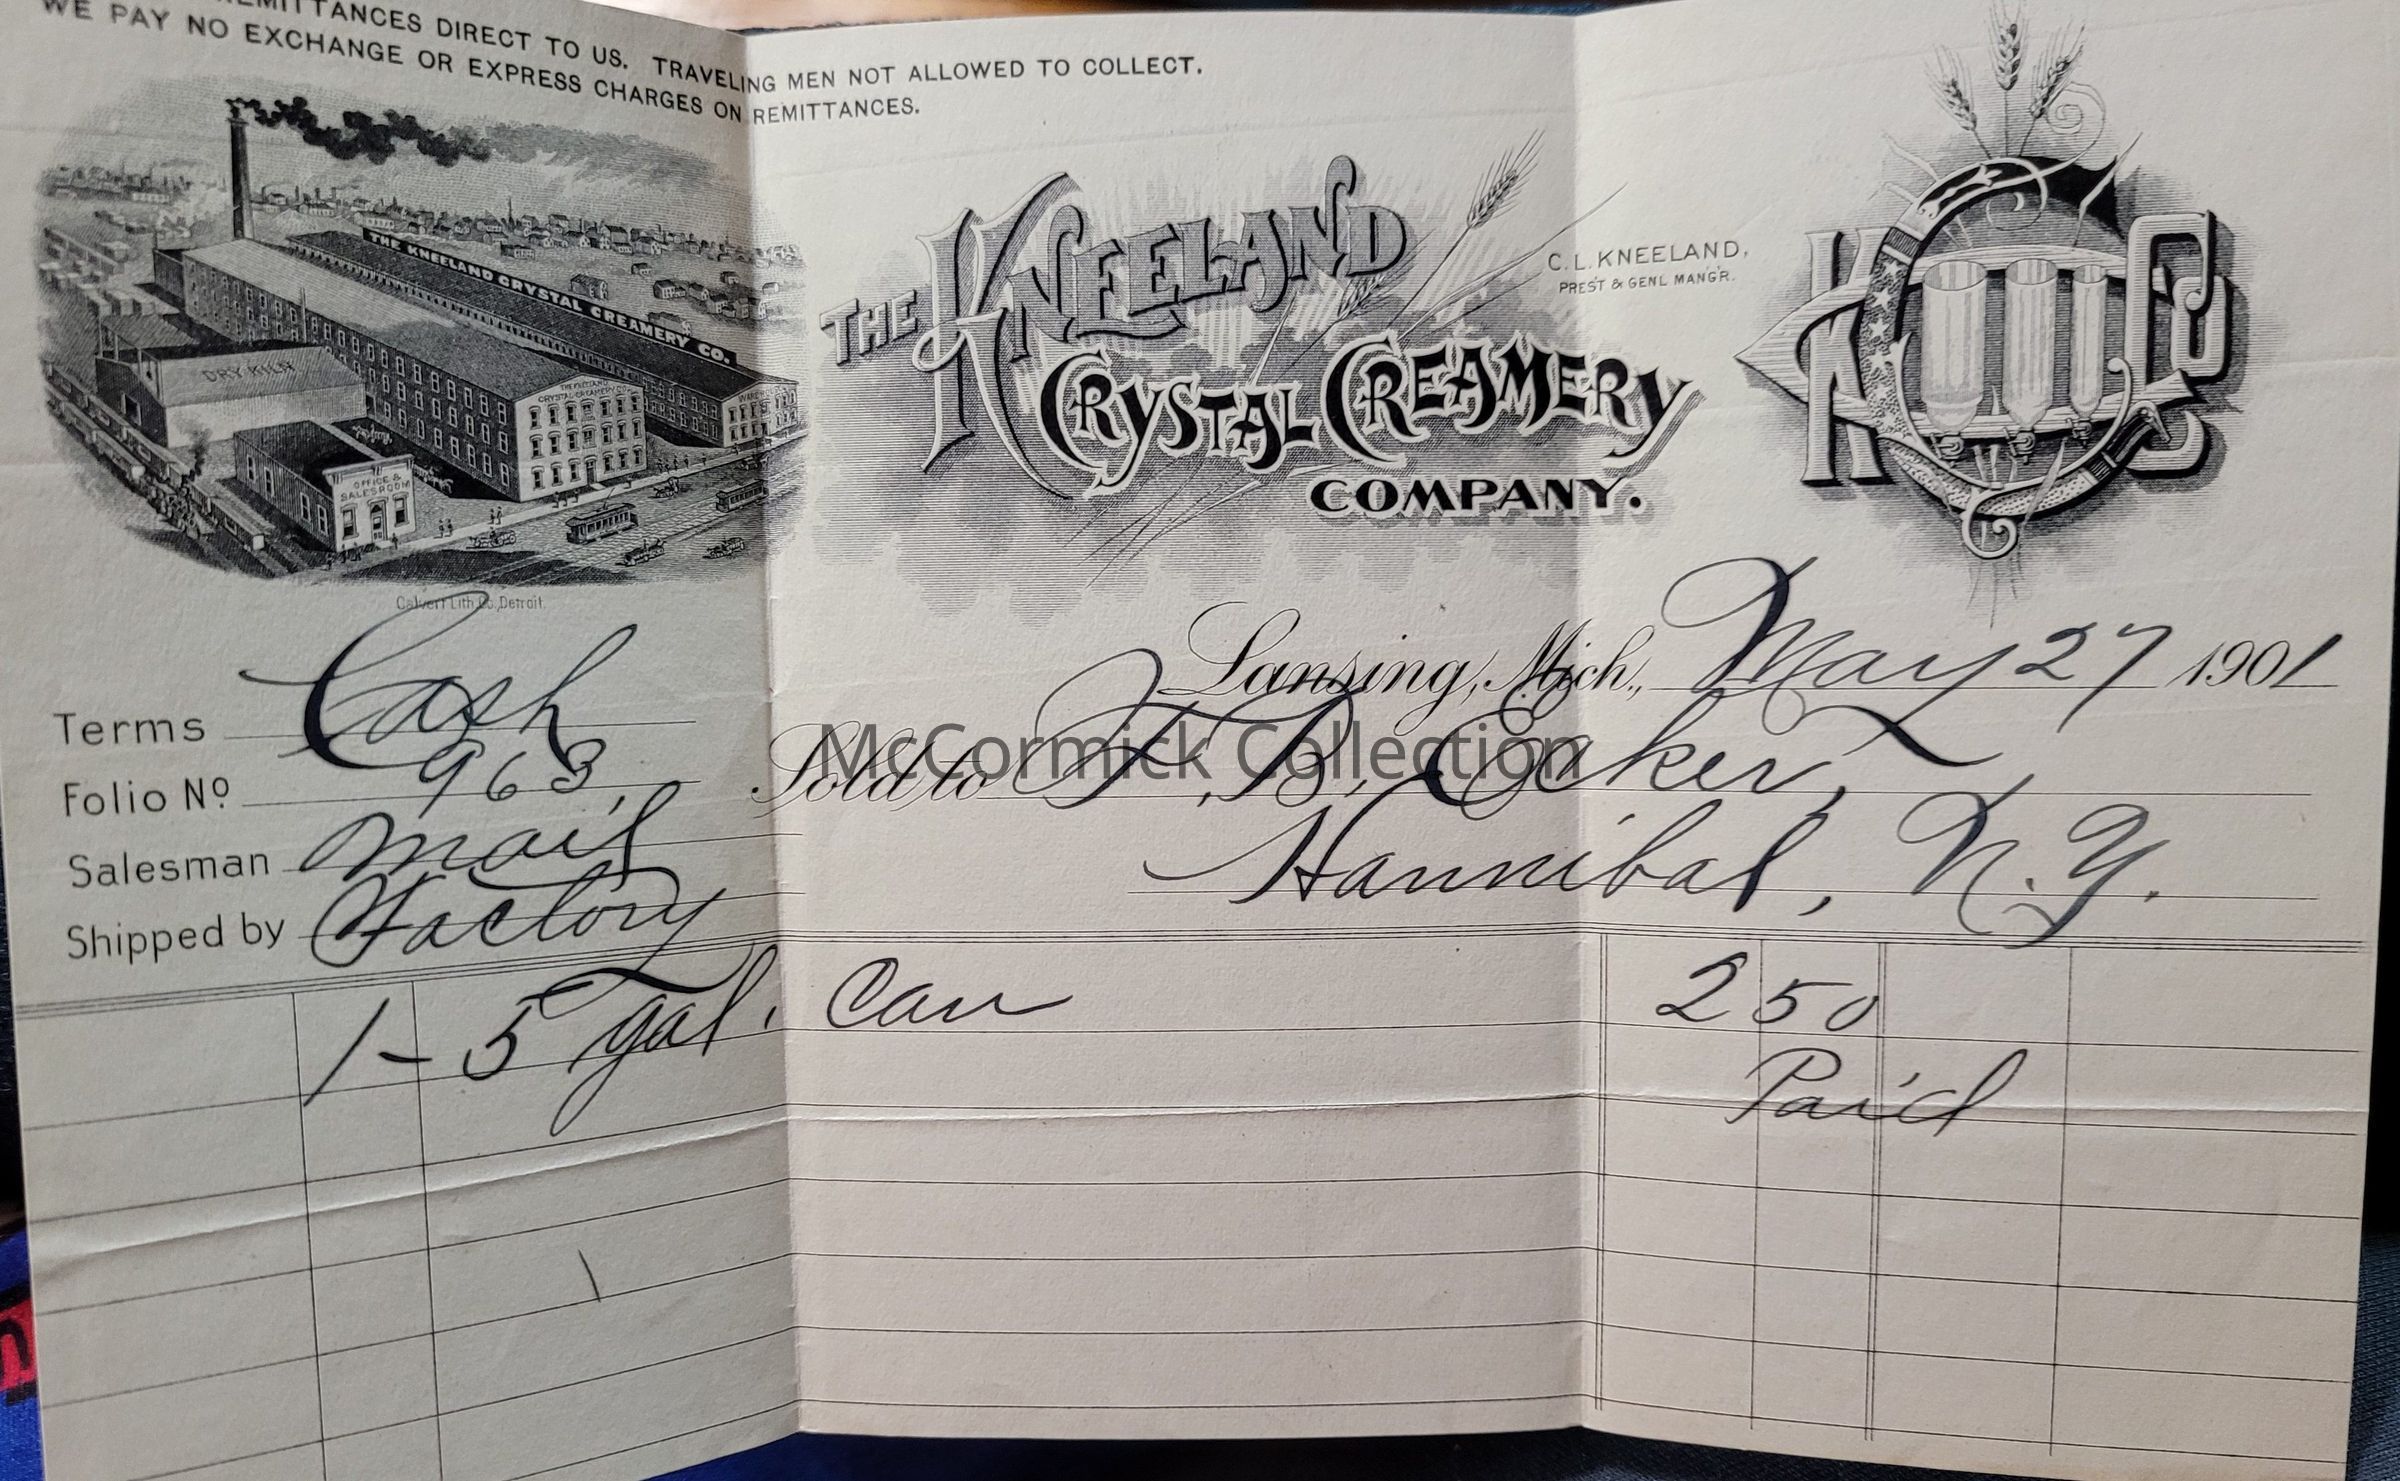 REMITTANCES DIRECT TO US. TRAVELING MEN NOT ALLOWED TO COLLECT.
WE PAY NO EXCHANGE OR EXPRESS CHARGES ON REMITTANCES.
THE KNEELAND CRYSTAL CREAMERY CO.
DRY KILN
THE KNEELAND
CRYSTAL CREAMERY CO.
OFFICE &
SALESROOM
Calvert Lith. Co., Detroit.
THE KNEELAND
CRYSTAL CREAMERY
COMPANY.
C. L. KNEELAND,
PRES'T & GENL MANG'R.
K C C Co
Lansing, Mich., May 27 1901
Terms Cash
Folio No. 963,
Salesman Mail
Shipped by Factory
Sold to F. B. Eaker,
Hannibal, N. Y.
McCormick Collection
1 - 5 gal. Can 2 50
Paid